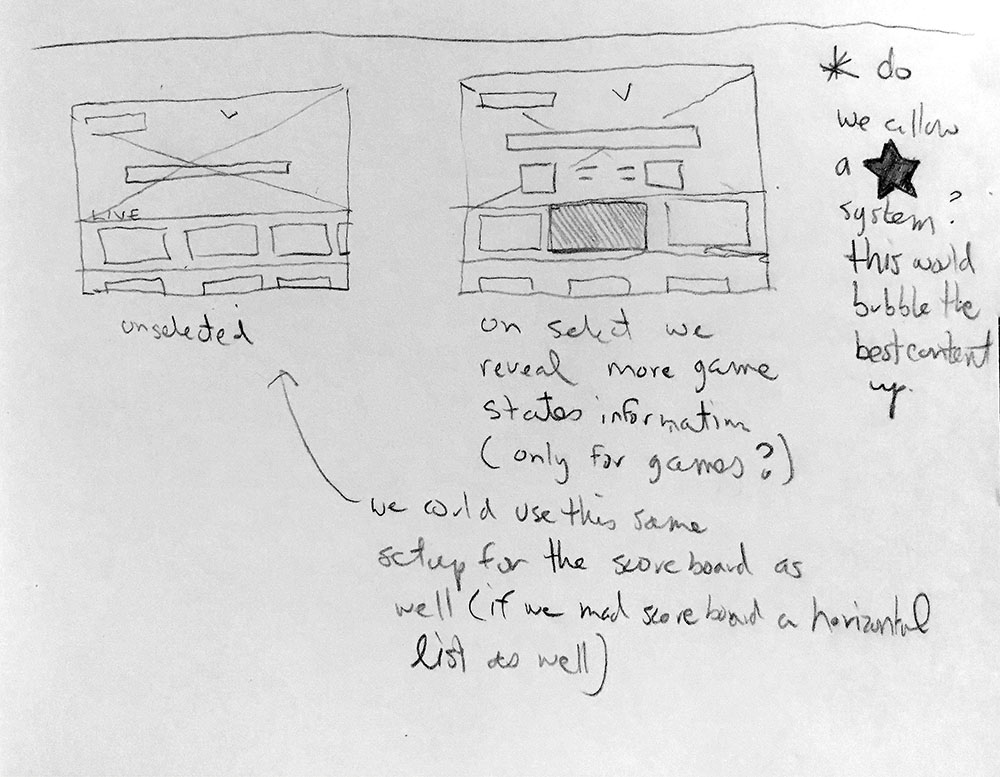 LIVE
unselected
on select we
reveal more game
states information
(only for games?)
we could use this same
setup for the scoreboard as
well (if we mad scoreboard a horizontal
list as well)
* do
we allow
a ★
system?
this would
bubble the
best content
up.